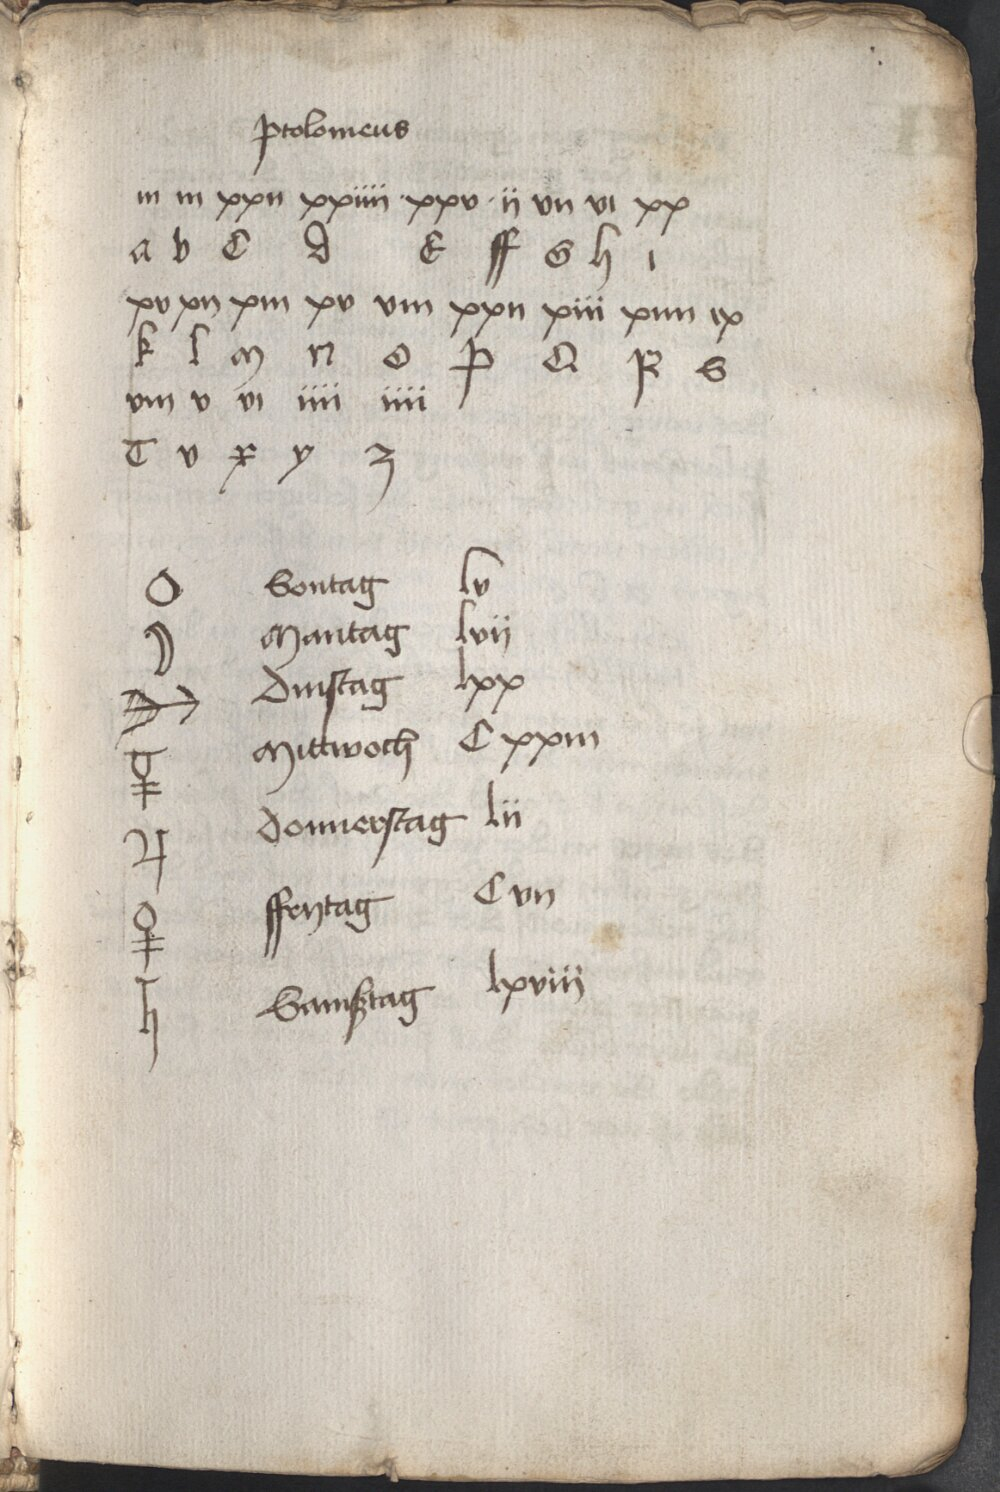 ptolomeus
iii iii xxii xxiiii · xxv · ii vii vi xx
a b c d E ff G h i
xv xii xiii xv viii xxii xiii xiiii ix
k l m n o p q R S
viii v vi iiii iiii
T v x y z
☉ Sontag lv
☽ Mantag lvii
♂ Dinstag lxx
☿ Mittwoch C xxiii
♃ Donnerstag lii
♀ ffreytag C vii
♄ Samßtag lxviii